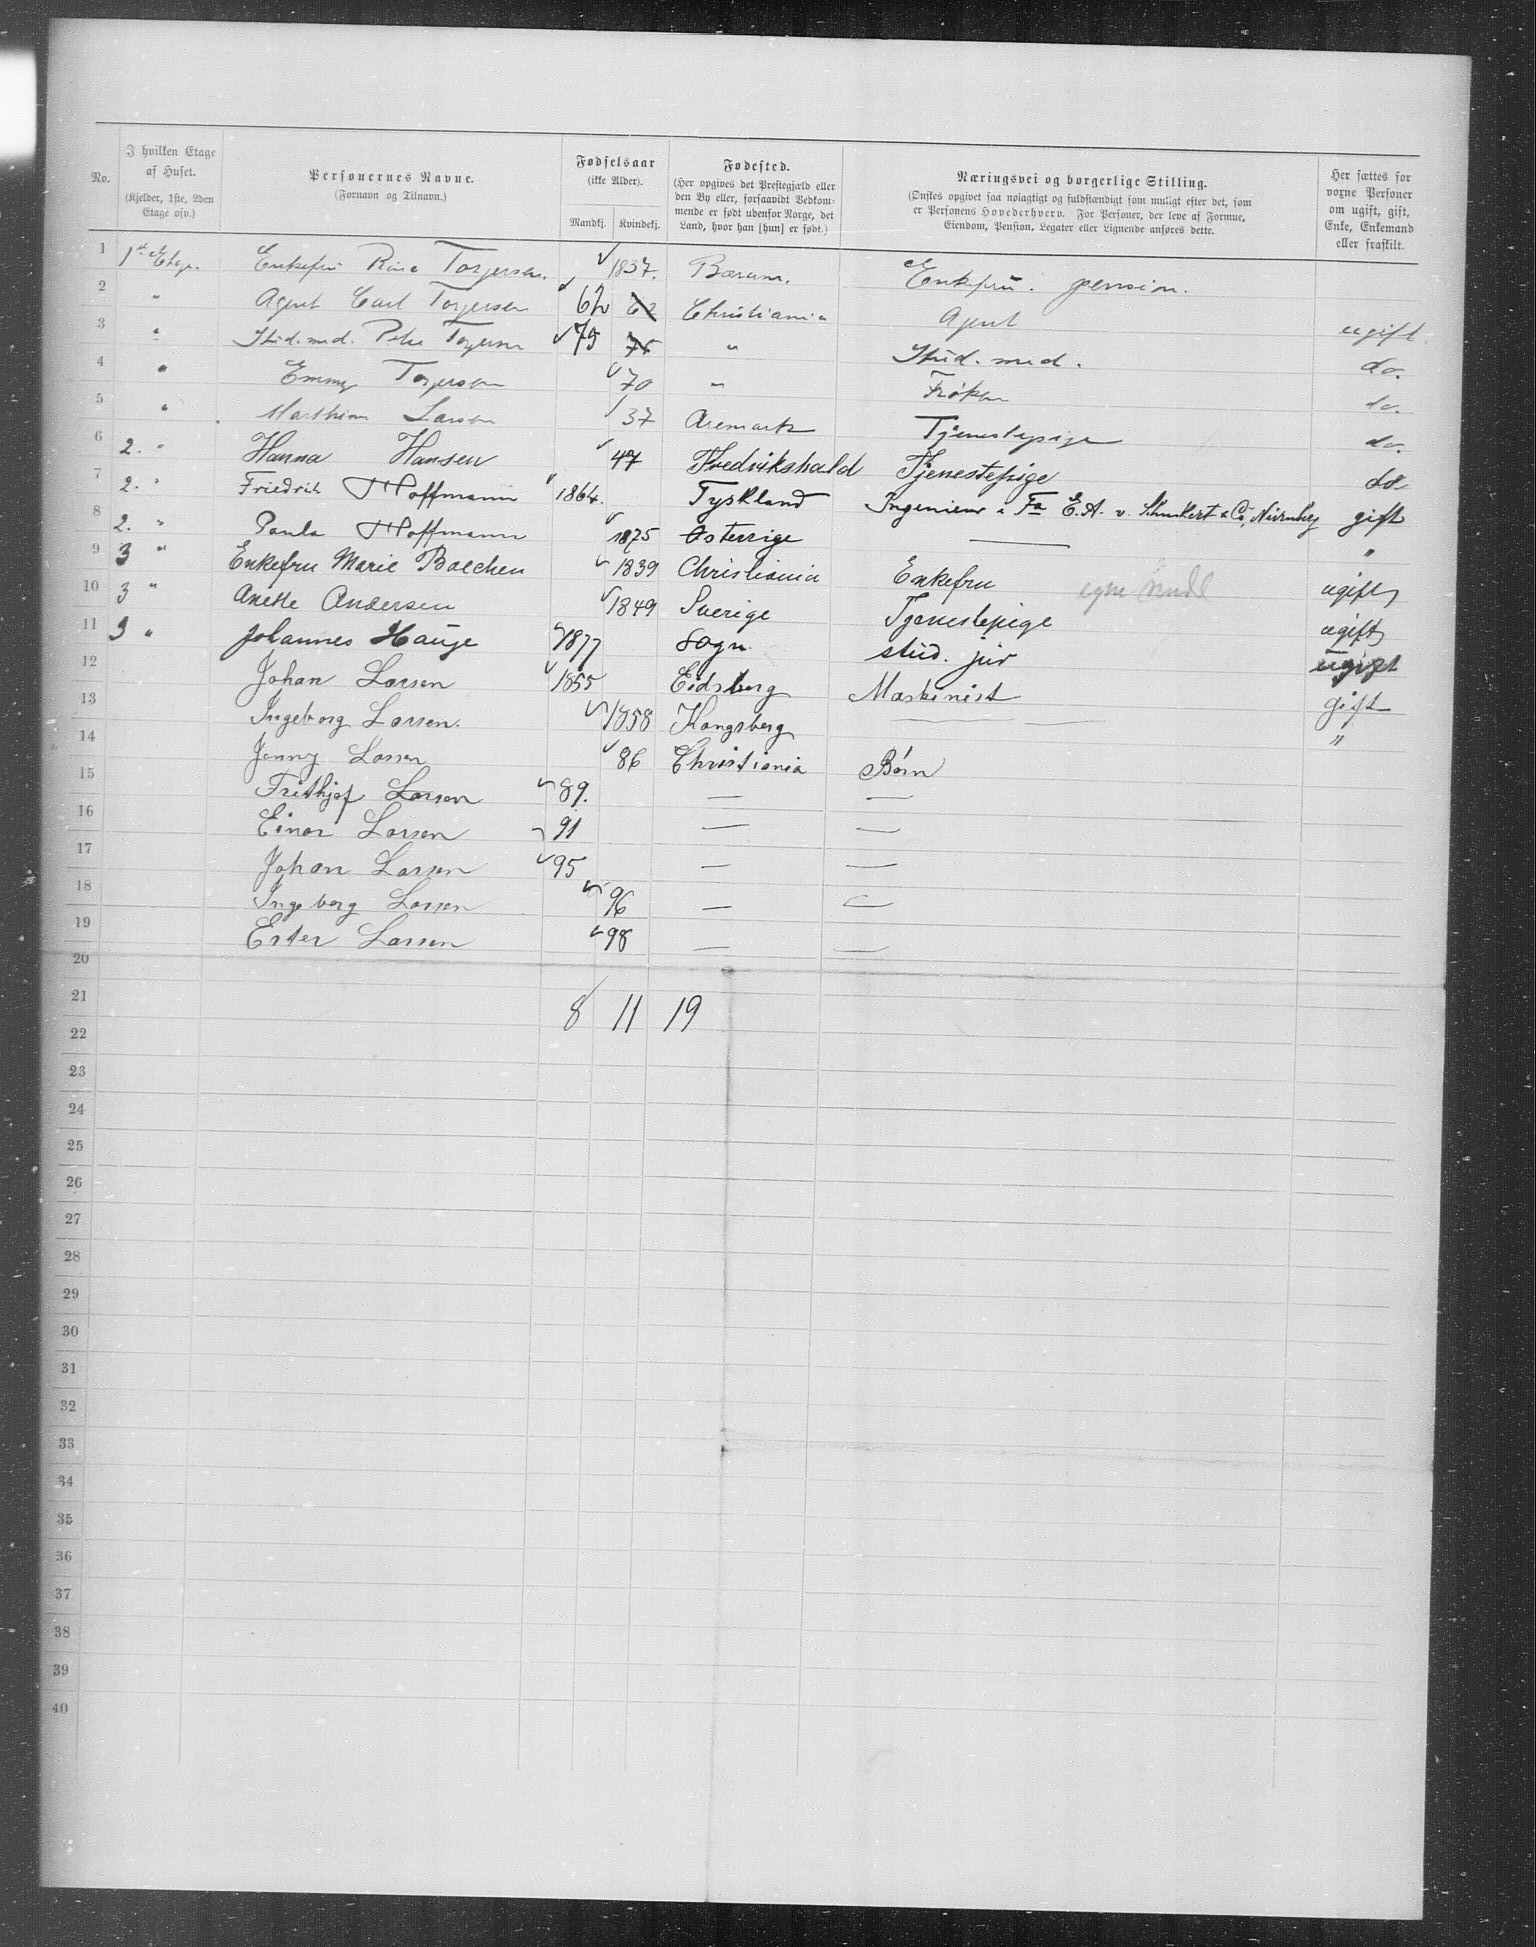 No. | I hvilken Etage af Huset. (Kjelder, 1ste, 2den Etage osv.) | Personernes Navne. (Fornavn og Tilnavn.) | Fødselsaar (ikke Alder). Mandkj. Kvindekj. | Fødested. (Her opgives det Prestegjæld eller den By eller, forsaavidt Vedkommende er født udenfor Norge, det Land, hvor han [hun] er født.) | Næringsvei og borgerlige Stilling. (Ønskes opgivet saa nøiagtigt og fuldstændigt som muligt efter det, som er Personens Hovederhverv. For Personer, der leve af Formue, Eiendom, Pension, Legater eller Lignende anføres dette. | Her sættes for voxne Personer om ugift, gift, Enke, Enkemand eller fraskilt.
1 1st Etage. Enkefru Torgersen. 1837. Bærum. Enkefru. pension.
2 " Agent Carl Torgersen 62 62 Christiania Agent ugift.
3 " Stud. med. Torgersen 75 75 " Stud. med. do.
4 " Emmy Torgersen 70 " Frøken do.
5 " Larsen 37 Aremark Tjenestepige do.
6 2. " Hanna Hansen 47 Fredrikshald Tjenestepige do
7 2. " Friedrich Hoffmann 1864. Tyskland Ingeniør i Fa E. A. v. Shunkert & Co, Nürnberg gift
8 2. " Paula Hoffmann 1875 Østerrige — "
9 3 " Enkefru Marie Boechen 1839 Christiania Enkefru egne ugift
10 3 " Anette Andersen 1849 Sverige Tjenestepige ugift
11 3 " Johannes Hauge 1877 Sogn stud. jur ugift
12 Johan Larsen 1855 Eidsberg Maskinist gift
13 Ingeborg Larsen. 1858 Kongsberg — — "
14 Jenny Larsen 86 Christiania Børn
15 Frithjof Larsen 89. — —
16 Einar Larsen 91 — —
17 Johan Larsen 95 — —
18 Ingeborg Larsen 96 — —
19 Ester Larsen 98 — —
20
21
8 11 19
22
23
24
25
26
27
28
29
30
31
32
33
34
35
36
37
38
39
40